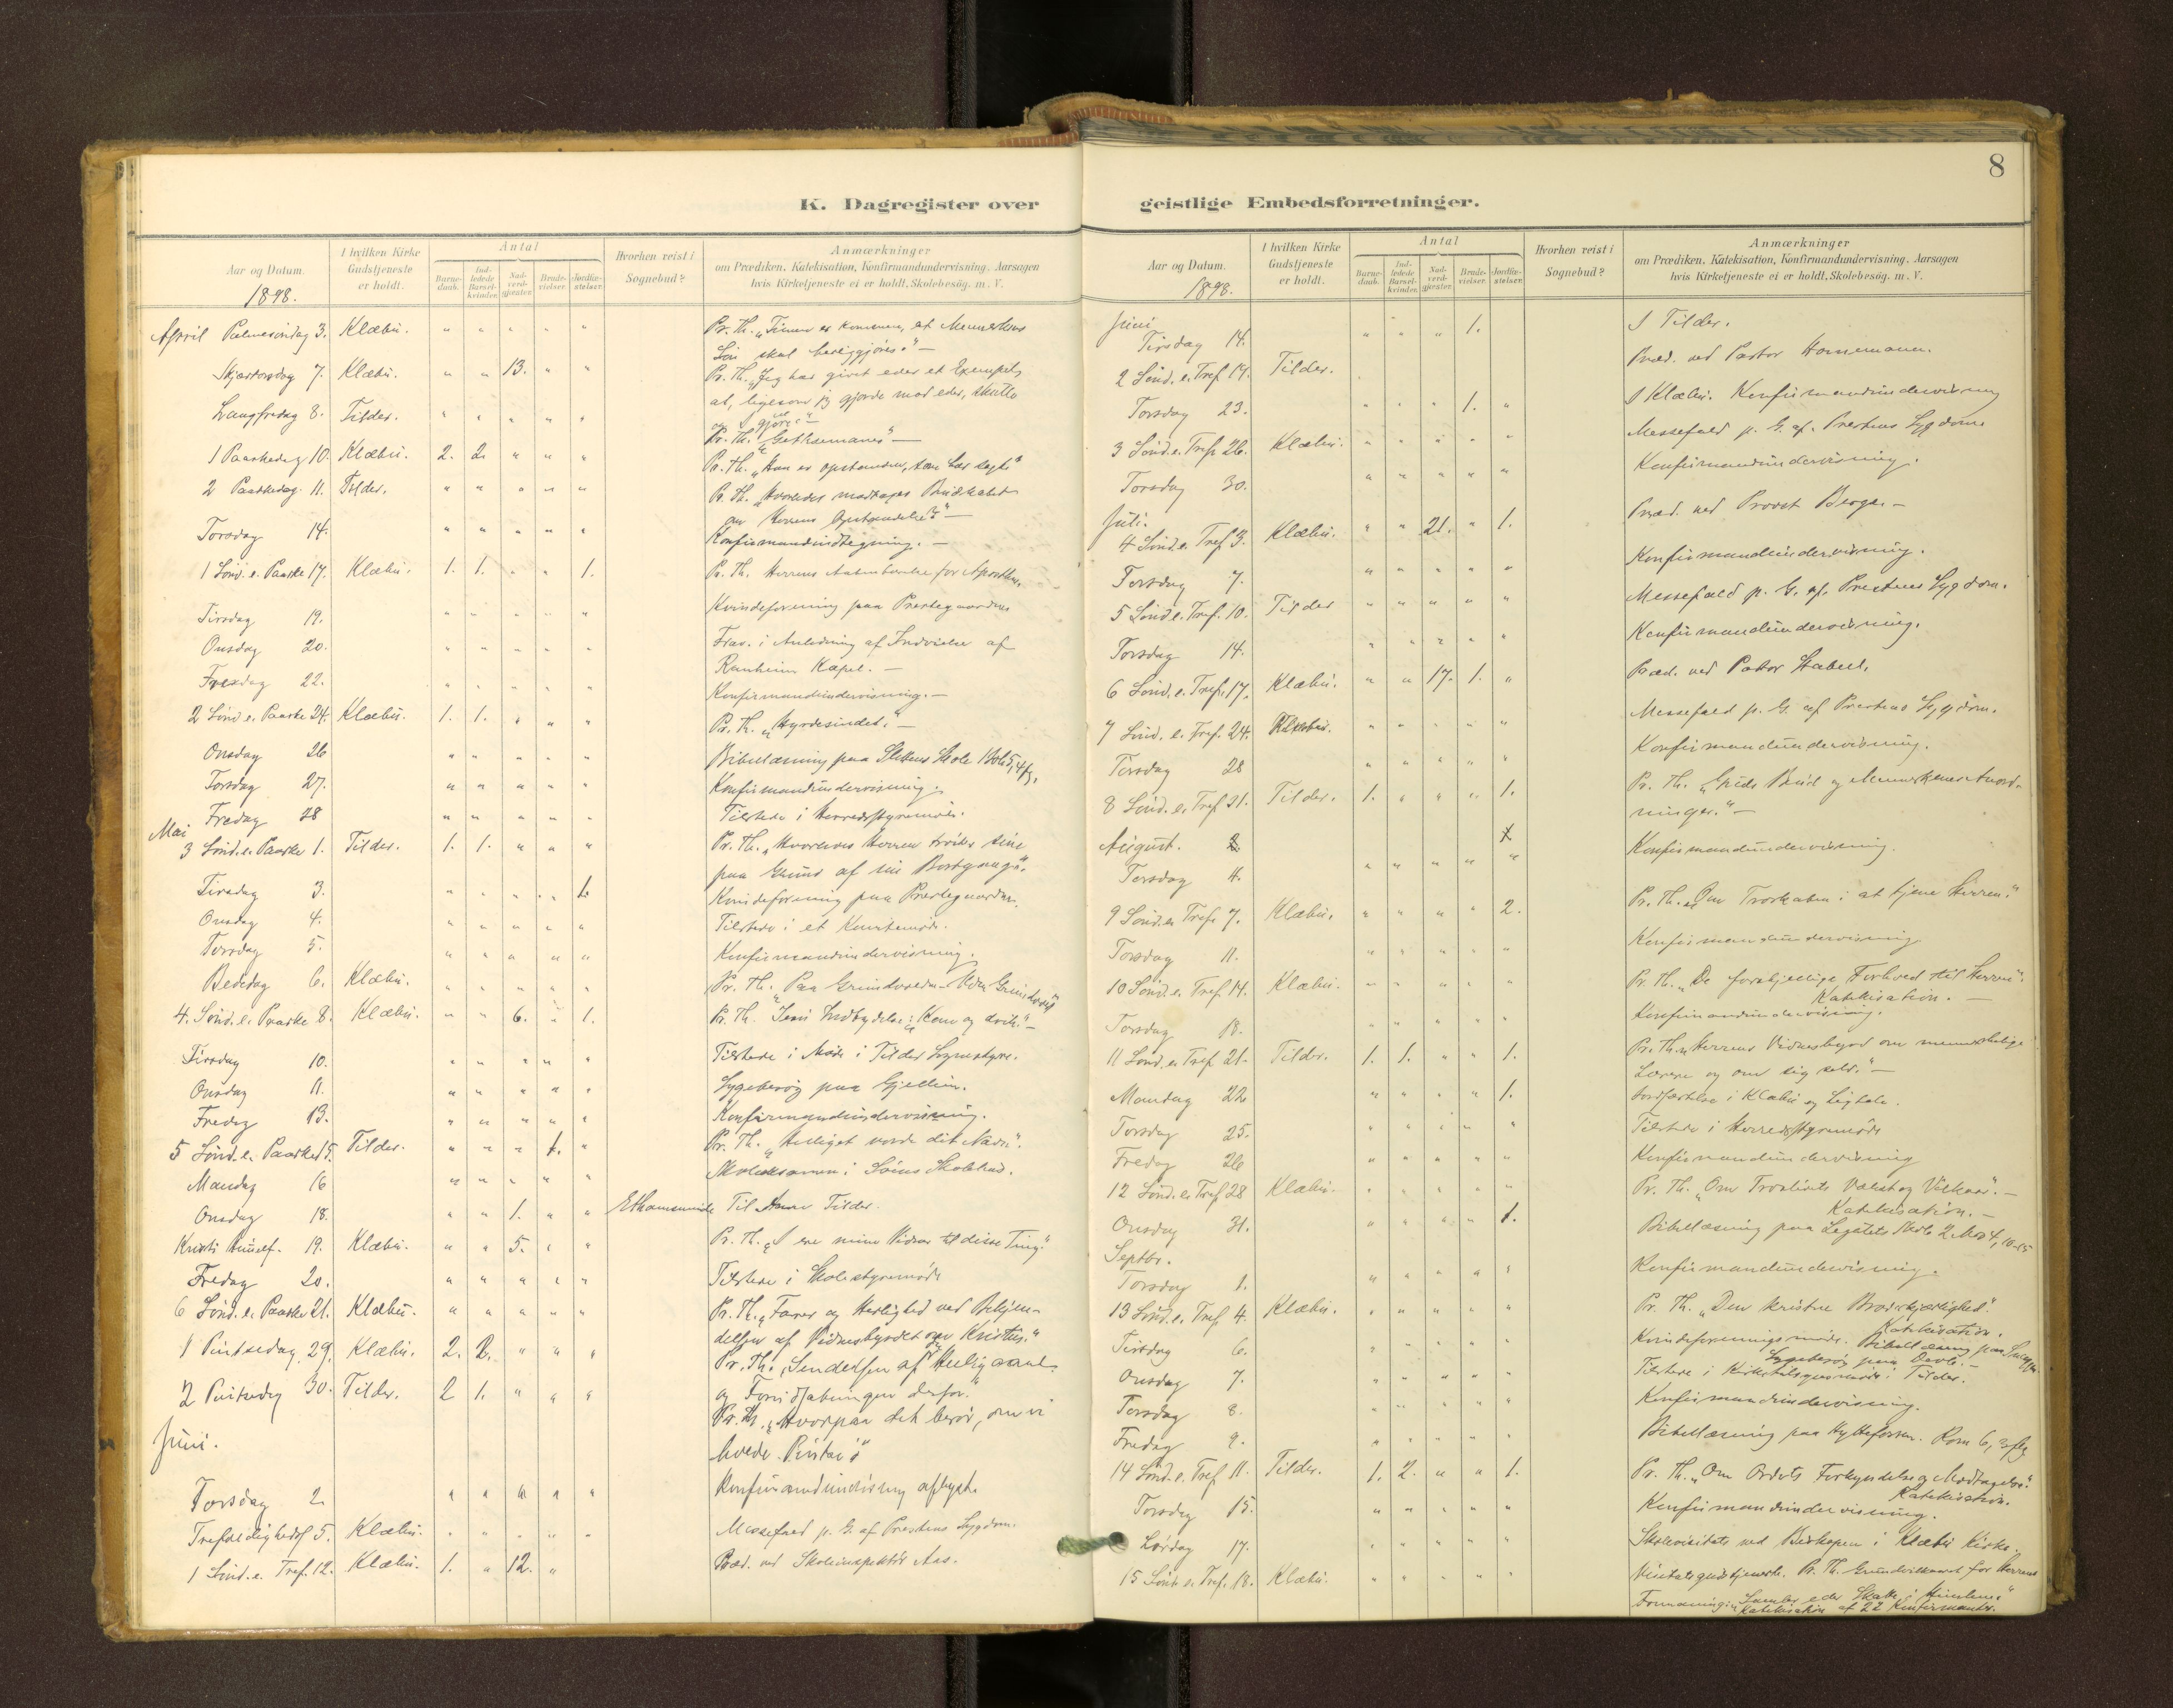 K. Dagregister over
Aar og Datum.
1898.
I hvilken Kirke Gudstjeneste er holdt.
Antal
Barnedaab.
Indledede Barselkvinder.
Nadverdgjæster.
Brudevielser.
Jordfæstelser.
Hvorhen reist i Sognebud?
Anmærkninger
om Prædiken, Katekisation, Konfirmandundervisning, Aarsagen
hvis Kirketjeneste ei er holdt, Skolebesög. m. V.
April Palmesöndag 3. Klæbu. " " " " " Pr. Th. „Timen er kommen, at Menneskens
Sön skal herliggjöres." —
Skjærtorsdag 7. Klæbu. " " 13. " " Pr. Th. „Jeg har givet eder et Exempel,
at, ligesom jeg gjorde mod eder, skulle
og I gjöre." —
Langfredag 8. Tilder. " " " " " Pr. Th. „Gethsemane" —
1 Paaskedag 10. Klæbu. 2. 2. " " " Pr. Th. „Han er opstanden,
2 Paaskedag 11. Tilder. " " " " " Pr. Th. „Hvorledes modtages Budskabet
om Herrens Opstandelse?" —
Torsdag 14. " " " " " Konfirmandindtegning. —
1 Sönd. e. Paaske 17. Klæbu. 1. 1. " " 1. Pr. Th. Herrens
Tirsdag 19. " " " " " Kvindeforening paa Prestegaarden
Onsdag 20. " " " " " Frav. i Anledning af Indvielse af
Ranheim Kapel. —
Fredag 22. " " " " " Konfirmandundervisning. —
2 Sönd. e. Paaske 24. Klæbu. 1. 1. " " " Pr. Th. „Hyrdesindet." —
Onsdag 26 " " " " " Bibellæsning paa Skole
Torsdag 27. " " " " " Konfirmandundervisning.
Fredag 28 " " " " " Tilstede i Herredsstyremöde.
Mai
3 Sönd. e. Paaske 1. Tilder. 1. 1. " " " Pr. Th. „Hvorledes Herren tröster sine
paa Grund af sin Bortgang".
Tirsdag 3. " " " " 1. Kvindeforening paa Prestegaarden.
Onsdag 4. " " " " " Tilstede i et
Torsdag 5. " " " " " Konfirmandundervisning.
Bededag 6. Klæbu. " " " " " Pr. Th.
4. Sönd. e. Paaske 8. Klæbu. " " 6. " 1. Pr. Th. Jesu Indbydelse: „Kom og —
Tirsdag 10. " " " " " Tilstede i Möde i Tilder Sognestyre.
Onsdag 11. " " " " " Sygebesög paa Gjellein.
Fredag 13. " " " " " Konfirmandundervisning.
5 Sönd. e. Paaske 15. Tilder. " " " 1. " Pr. Th. „Helliget vorde dit Navn".
Mandag 16 " " " " " Skoleexamen i
Onsdag 18. " " 1. " " Til Tilder.
Kristi Himmelf. 19. Klæbu. " " 5. " " Pr. Th. „I ere mine Vidner til disse Ting."
Fredag 20. " " " " " Tilstede i Skolestyremöde
6 Sönd. e. Paaske 21. Klæbu. " " " " " Pr. Th. „Farer og Herlighed ved Bekjen-
delsen af Vidnesbyrdet om Kristus."
1 Pintsedag 29. Klæbu. 2. 2. " " " Pr. Th. „Sendelsen af den Helligaand
og Forudsætningen derfor."
2 Pintsedag 30. Tilder. 2 1. " " " Pr. Th. „Hvorpaa det beror, om vi
have Pintse"
Juni.
Torsdag 2. " " " " " Konfirmandundervisning aflyst.
Trefoldighedsf. 5. Klæbu. " " " " " Messefald p. G. af Prestens Sygdom.
1 Sönd. e. Tref. 12. Klæbu. 1. " 12. " Præd. ved Skoleinspektör Aas.
8
geistlige Embedsforretninger.
Aar og Datum.
1898.
I hvilken Kirke Gudstjeneste er holdt.
Antal
Barnedaab.
Indledede Barselkvinder.
Nadverdgjæster.
Brudevielser.
Jordfæstelser.
Hvorhen reist i Sognebud?
Anmærkninger
om Prædiken, Katekisation, Konfirmandundervisning, Aarsagen
hvis Kirketjeneste ei er holdt, Skolebesög. m. V.
Juni
Tirsdag 14. " " " 1. I Tilder.
2 Sönd. e. Tref. 19. Tilder. Præd. ved Pastor Hornemann.
Torsdag 23. " " " 1. " I Klæbu. Konfirmandundervisning
3 Sönd. e. Tref. 26. Klæbu. " " " " " Messefald p. G. af Prestens Sygdom.
Torsdag 30. " " " " " Konfirmandundervisning.
Juli.
4 Sönd. e. Tref. 3. Klæbu. " " 21. " 1. Præd. ved Provst Berge. —
Torsdag 7. " " " " " Konfirmandundervisning.
5 Sönd. e. Tref. 10. Tilder " " " " " Messefald p. G. af Prestens Sygdom.
Torsdag 14. " " " " " Konfirmandundervisning.
6 Sönd. e. Tref. 17. Klæbu. " " 17. 1. " Præd. ved Pastor Stabell.
7 Sönd. e. Tref. 24. Klæbu. " " " " " Messefald p. G. af Prestens Sygdom.
Torsdag 28 " " " " " Konfirmandundervisning.
8 Sönd. e. Tref. 31. Tilder. 1. " " " 1. Pr. Th. „Guds Bud og Menneskenes Anord-
ninger." —
August.
Torsdag 4. " " " " " Konfirmandundervisning.
9 Sönd. e. Tref. 7. Klæbu. " " " " 2. Pr. Th. „Om Troskaben i at tjene Herren."
Torsdag 11. " " " " " Konfirmandundervisning
10 Sönd. e. Tref. 14. Klæbu. " " " " " Pr. Th. „De forskjellige Forhold til Herren".
Katekisation. —
Torsdag 18. " " " " " Konfirmandundervisning.
11 Sönd. e. Tref. 21. Tilder. 1. 1. " " 1. Pr. Th. „Herrens Vidnesbyrd om menneskelige
Lærere og om sig selv." —
Mandag 22 " " " " 1. Jordfæstelse i Klæbu og Ligtale.
Torsdag 25. " " " " " Tilstede i Herredsstyremöde
Fredag 26 " " " " " Konfirmandundervisning
12 Sönd. e. Tref. 28 Klæbu. " " " " " Pr. Th. „Om Troslivets Vækst og Vilkaar". —
Katekisation. —
Onsdag 31. " " " " 1. Bibellæsning paa Legatets Skole 2 Mos 4, 10-15
Septbr.
Torsdag 1. " " " " " Konfirmandundervisning.
13 Sönd. e. Tref. 4. Klæbu. " " " " " Pr. Th. „Den kristne Broderkjærlighed".
Katekisation.
Tirsdag 6. " " " " " Kvindeforeningsmöde. Bibellæsning paa
Sygebesög paa —
Onsdag 7. " " " " " Tilstede i Kirketilsynsmöde i Tilder.
Torsdag 8. " " " " " Konfirmandundervisning.
Fredag 9. " " " " " Bibellæsning paa Hyttefossen. Rom 6, 3 flg
14 Sönd. e. Tref. 11. Tilder. 1. 2. " " 1. Pr. Th. „Om Ordets Forkyndelse og Modtagelse."
Katekisation.
Torsdag 15. " " " " " Konfirmandundervisning.
Lördag 17. " " " " " Skolevisitats ved Biskopen i Klæbu Kirke.
15 Sönd. e. Tref. 18. Klæbu. " " " " " Visitatsgudstjeneste. Pr. Th. Grundvilkaaret for Herrens
Formaning: „Samler eder Skatte i Himlene."
Katekisation af 22 Konfirmander.